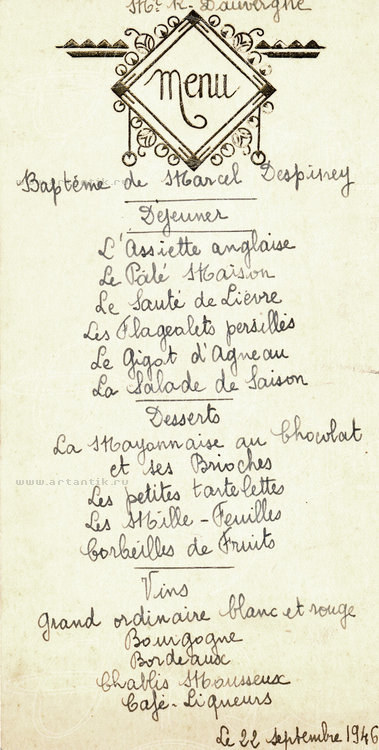 Mr. R. Dauvergne
Menu
Baptême de Marcel Despirey
Déjeuner
L'Assiette anglaise
Le Pâté Maison
Le Sauté de Lièvre
Les Flageolets persillés
Le Gigot d'Agneau
La Salade de Saison
Desserts
La Mayonnaise au Chocolat
et ses Brioches
www.artantik.ru
Les petites tartelettes
Les Mille-Feuilles
Corbeilles de Fruits
Vins
Grand ordinaire blanc et rouge
Bourgogne
Bordeaux
Chablis Mousseux
Café-Liqueurs
Le 22 septembre 1946